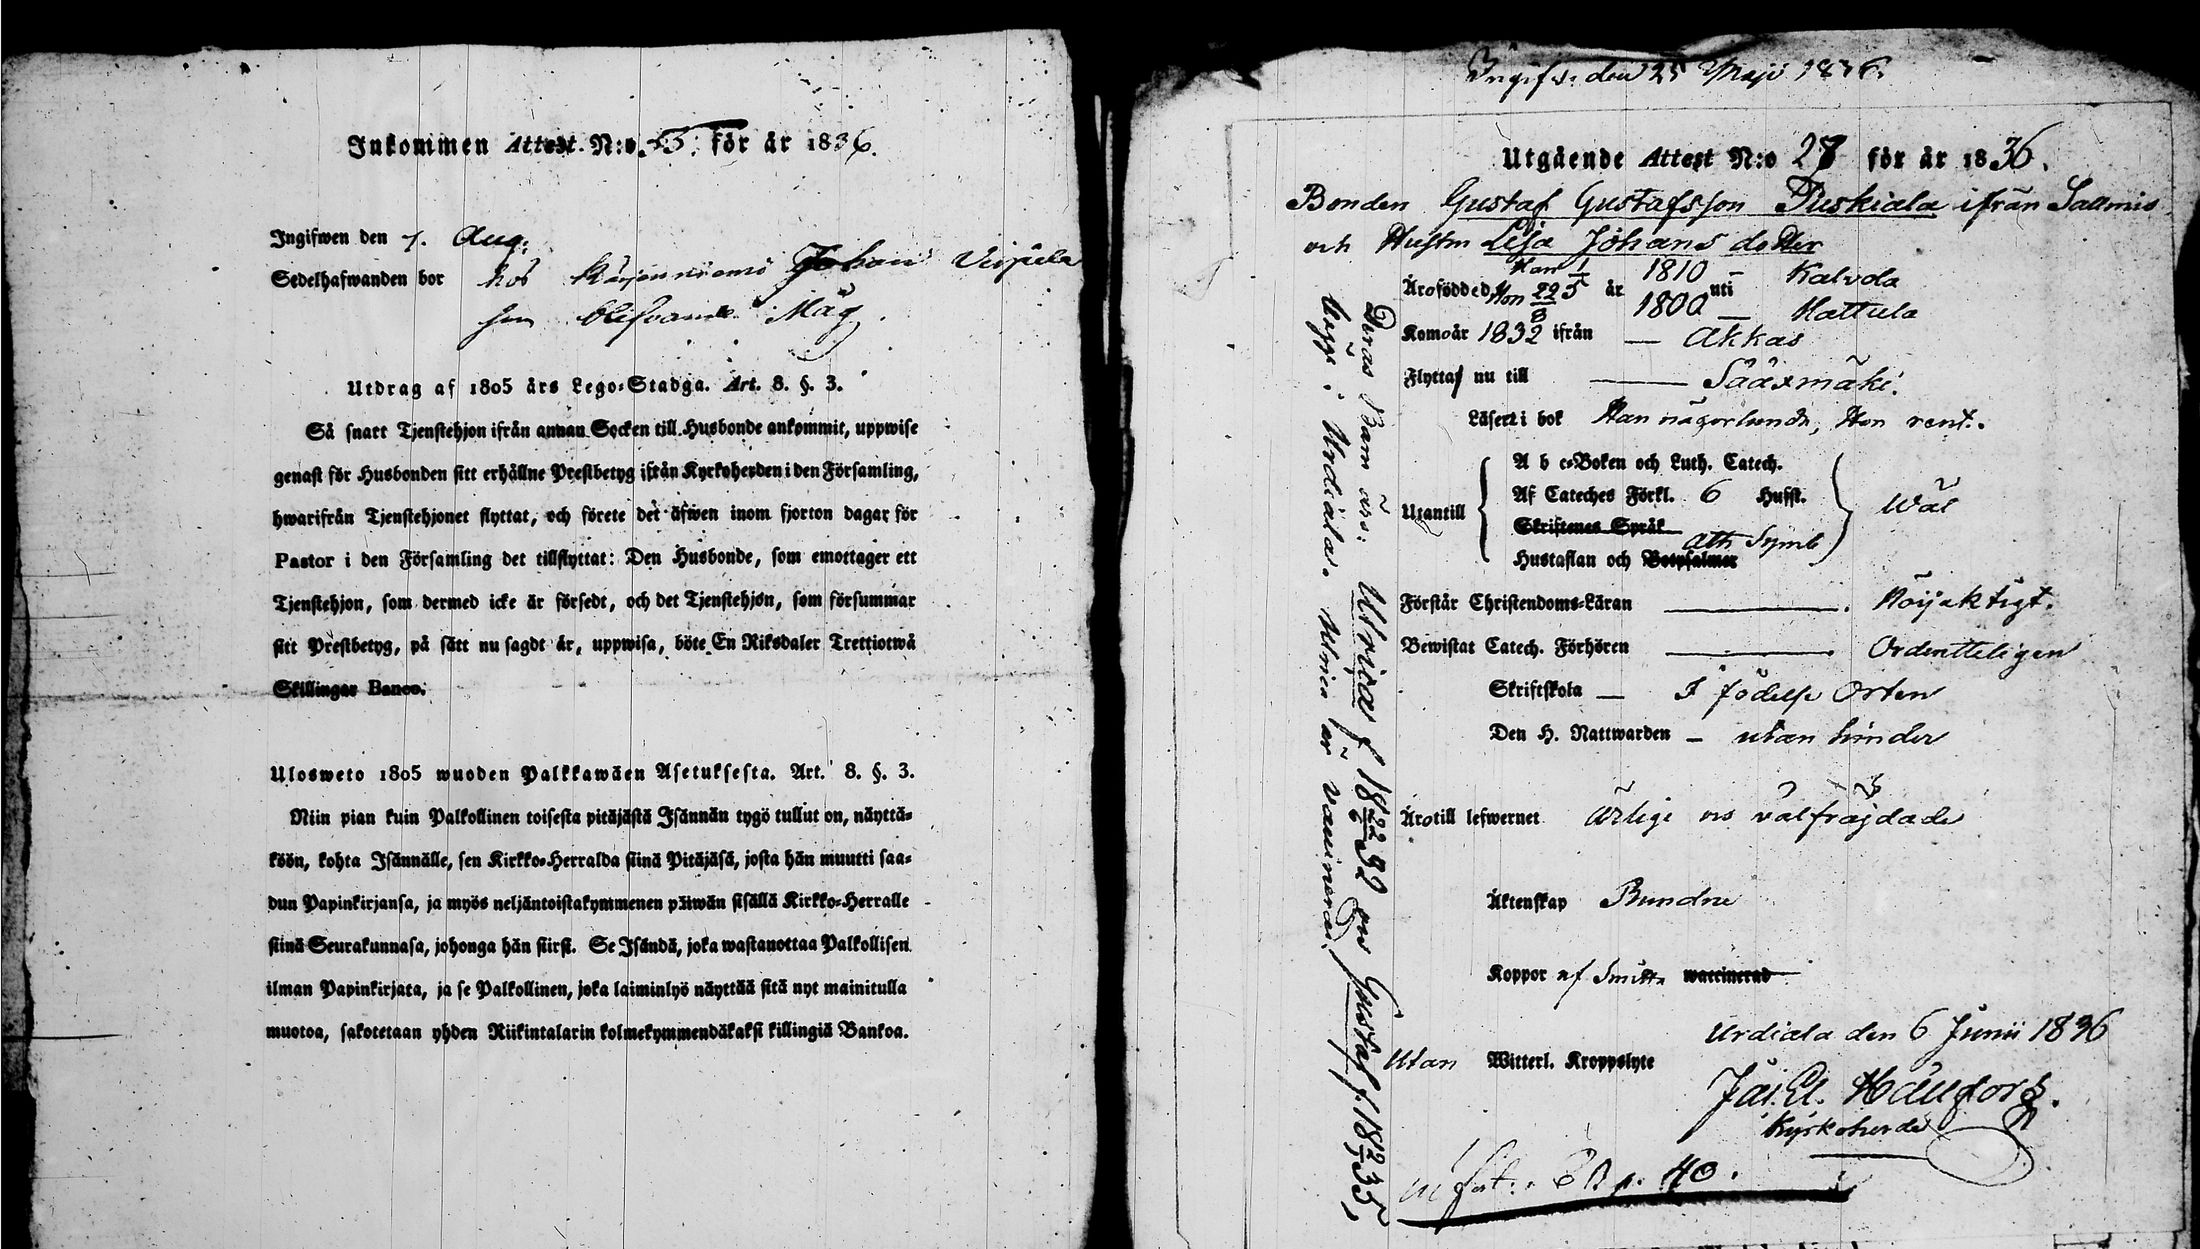 Inkommen Attest. N:o för år 1836.
Ingifwen den 7. Aug.
Sedelhafwanden bor hos Johan
Måg.
Utdrag af 1805 års Lego-Stadga. Art. 8. §. 3.
Så snart Tjenstehjon ifrån annan Socken till Husbonde ankommit, uppwise
genast för Husbonden sitt erhållne Prestbetyg ifrån Kyrkoherden i den Församling,
hwarifrån Tjenstehjonet flyttat, och förete det äfwen inom fjorton dagar för
Pastor i den Församling det tillflyttat: Den Husbonde, som emottager ett
Tjenstehjon, som dermed icke är försedt, och det Tjenstehjon, som försummar
sitt Prestbetyg, på sätt nu sagdt är, uppwisa, böte En Riksdaler Trettiotwå
Skillingar Banco.
Ulosweto 1805 wuoden Palkkawäen Asetuksesta. Art. 8. §. 3.
Niin pian kuin Palkollinen toisesta pitäjästä Isännän tygö tullut on, näyttä-
köön, kohta Isännälle, sen Kirkko-Herralda siinä Pitäjäsä, josta hän muutti saa-
dun Papinkirjansa, ja myös neljäntoistakymmenen päiwän sisällä Kirkko-Herralle
siinä Seurakunnasa, johonga hän siirsi. Se Isändä, joka wastanottaa Palkollisen
ilman Papinkirjata, ja se Palkollinen, joka laiminlyö näyttää sitä nyt mainitulla
muotoa, sakotetaan yhden Riikintalarin kolmekymmendäkaksi killingiä Bankoa.
Ingifv. den 25 Maji 1836.
Utgående Attest N:o 27 för år 1836.
Bonden Gustaf Gustafsson Puskiala ifrån Salmis
och Hustru Lisa Johans dotter
Äro födde d. Han 1/5 år 1810 uti Kalvola
Hon 22/8 1800 Hattula
Kom år 1832 ifrån Akkas
Flytta nu till Sääxmäki.
Läser i bok Han någorlunda, Hon rent.
A b c-Boken och Luth. Catech.
Af Cateches Förkl. 6 Hufst.
Utantill Wäl
Skriftenes Språk
Ath Symb
Hustaflan och Botpsalmer
Förstår Christendoms-Läran Nöijaktigt.
Bewistat Catech. Förhören Ordentteligen
Skriftskola I födelse Orten
Den H. Nattwarden utan hinder
Äro till lefwernet Ärlige och välfräjdade
Äktenskap Bundne
Koppor af Smitta waccinerad
Urdiala den 6 Junii 1836
Utan Witterl. Kroppslyte
Kyrkoherde
p. 40.
Deras Barn äro: Ulrica f 18 22/6 32 och Gustaf f. 18 2/7 35,
bägge i Urdiala. Ulrica är vaccinerad.